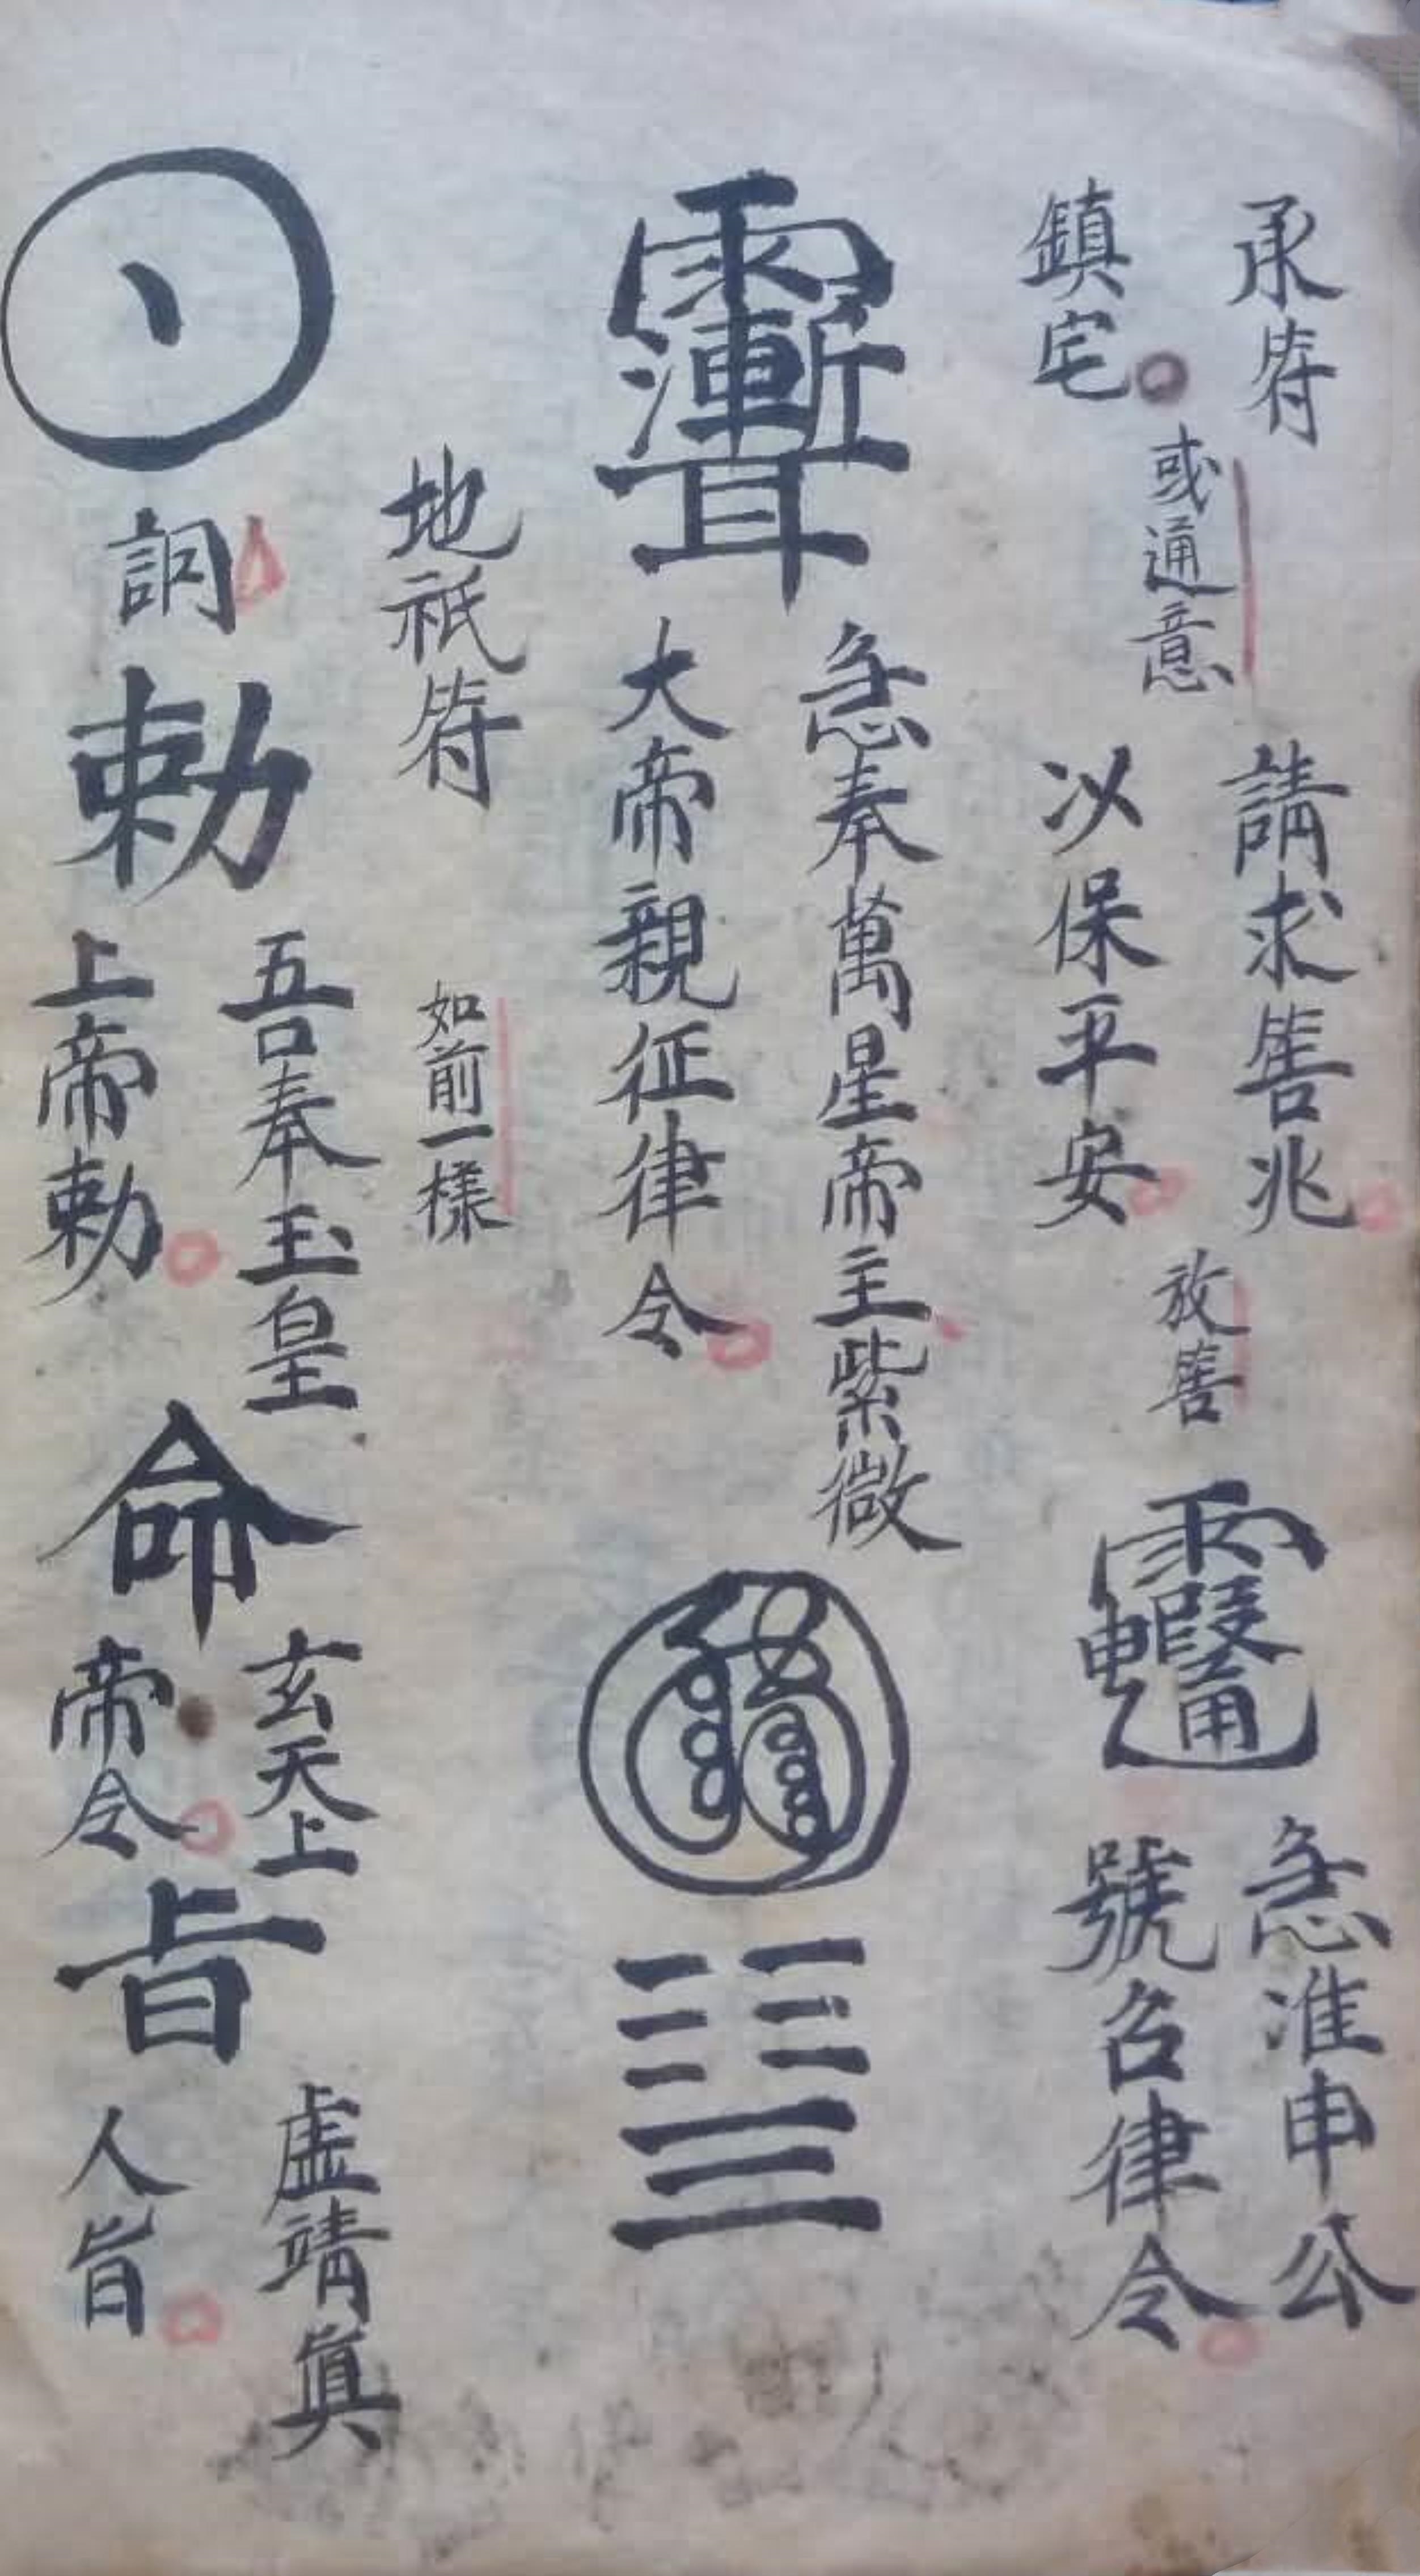 承符
鎮宅
或通意
請求筶兆
以保平安
放筶
急准申公
號名律令
急奉萬星帝主紫微
大帝親征律令
地祇符
如前一樣
勅
吾奉玉皇
上帝勅
命
玄天上
帝令
旨
虛靖真
人旨